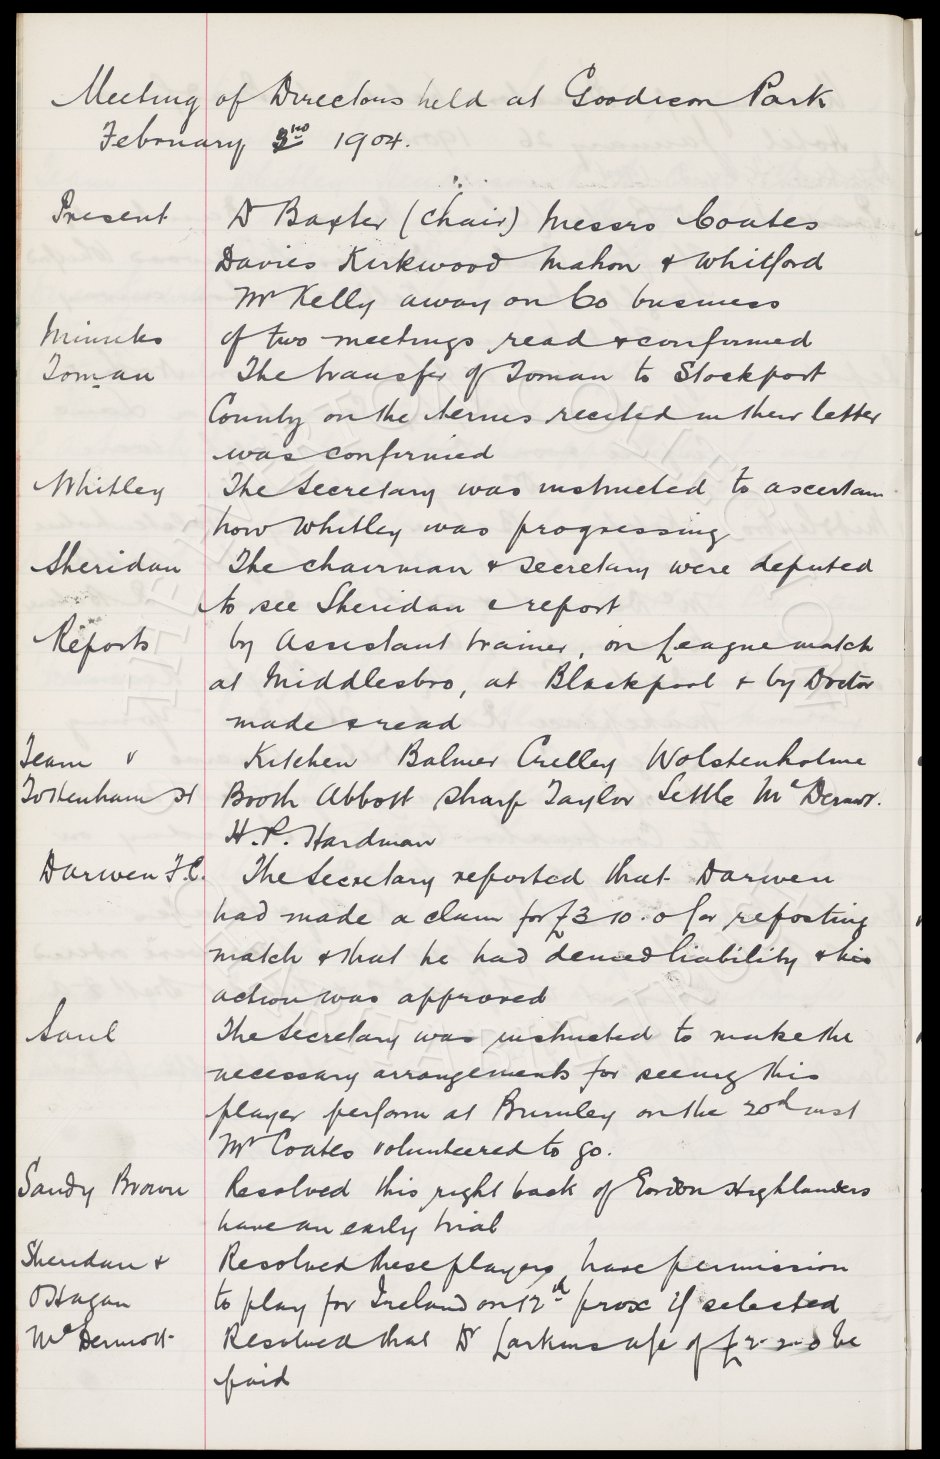 Meeting of Directors held at Goodison Park
February 3rd 1904.
Present Dr Baxter (Chair) Messrs Coates
Davies Kirkwood Mahon & Whitford
Mr Kelly away on Co business
Minutes of two meetings read & confirmed
Toman The transfer of Toman to Stockport
County on the terms recited in their letter
was confirmed
Whitley The Secretary was instructed to ascertain
how Whitley was progressing
Sheridan The chairman & Secretary were deputed
to see Sheridan & report
Reports by Assistant trainer, on League match
at Middlesbro, at Blackpool & by Doctor
made & read
Team v Kitchen Balmer Crelley Wolstenholme
Tottenham H Booth Abbott Sharp Taylor Settle McDermot.
H.P. Hardman
Darwen F.C. The Secretary reported that Darwen
had made a claim for £3 10.0 for reposting
match & that he had denied liability & his
action was approved
Saul The Secretary was instructed to make the
necessary arrangements for seeing this
player perform at Burnley on the 20th inst
Mr Coates volunteered to go.
Sandy Brown Resolved this right back of Gordon Highlanders
have an early trial
Sheridan & Resolved these players have permission
O'Hagan to play for Ireland on 12th prox if selected
McDermott Resolved that Dr Larkins a/c of £2-2-0 be
paid